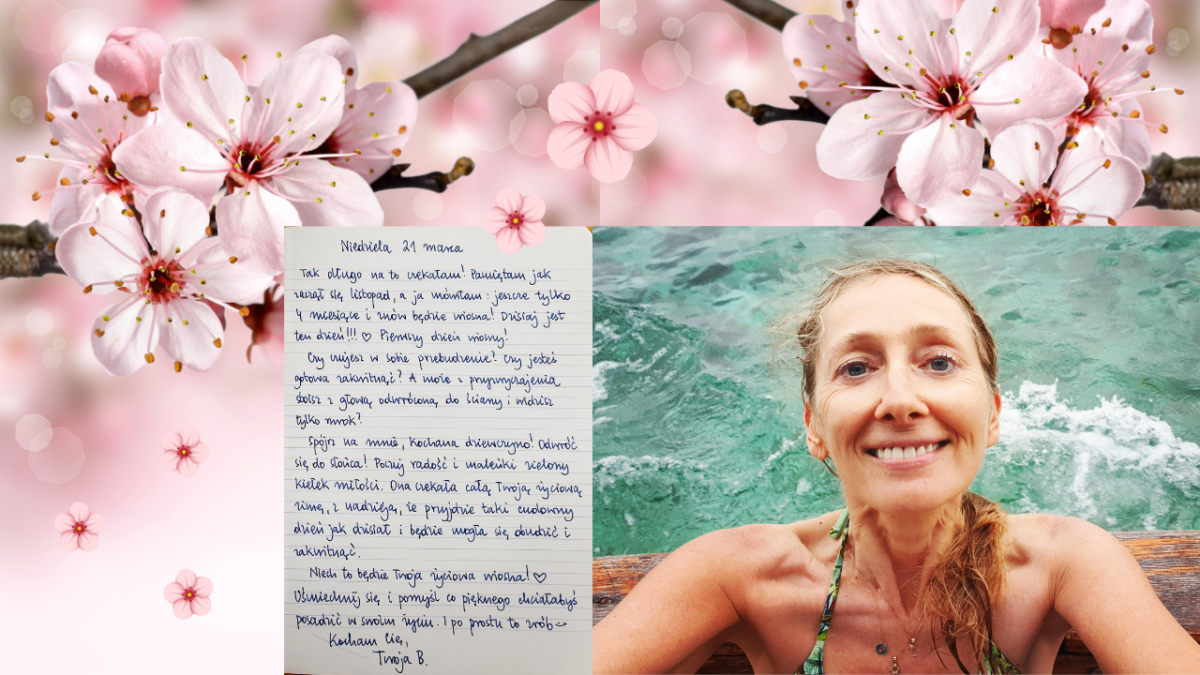 Niedziela 21 marca
Tak długo na to czekałam! Pamiętam jak
zaczął się listopad, a ja mówiłam: jeszcze tylko
4 miesiące i znów będzie wiosna! Dzisiaj jest
ten dzień!!! ♡ Pierwszy dzień wiosny!
Czy czujesz w sobie przebudzenie? Czy jesteś
gotowa zakwitnąć? A może z przyzwyczajenia
stoisz z głową odwróconą do ściany i widzisz
tylko mrok?
Spójrz na mnie, Kochana dziewczyno! Odwróć
się do słońca! Poczuj radość i maleńki zielony
kiełek miłości. Ona czekała całą Twoją życiową
zimę, z nadzieją, że przyjdzie taki cudowny
dzień jak dzisiaj i będzie mogła się obudzić i
zakwitnąć.
Niech to będzie Twoja życiowa wiosna! ♡
Uśmiechnij się i pomyśl co pięknego chciałabyś
posadzić w swoim życiu. I po prostu to zrób
Kocham Cię,
Twoja B.